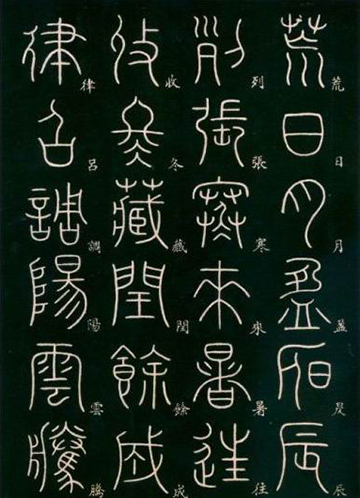 荒荒日日月月盈盈昃昃辰辰
列列張張寒寒來來暑暑往往
收收冬冬藏藏閏閏餘餘成成
律律呂呂調調陽陽雲雲騰騰